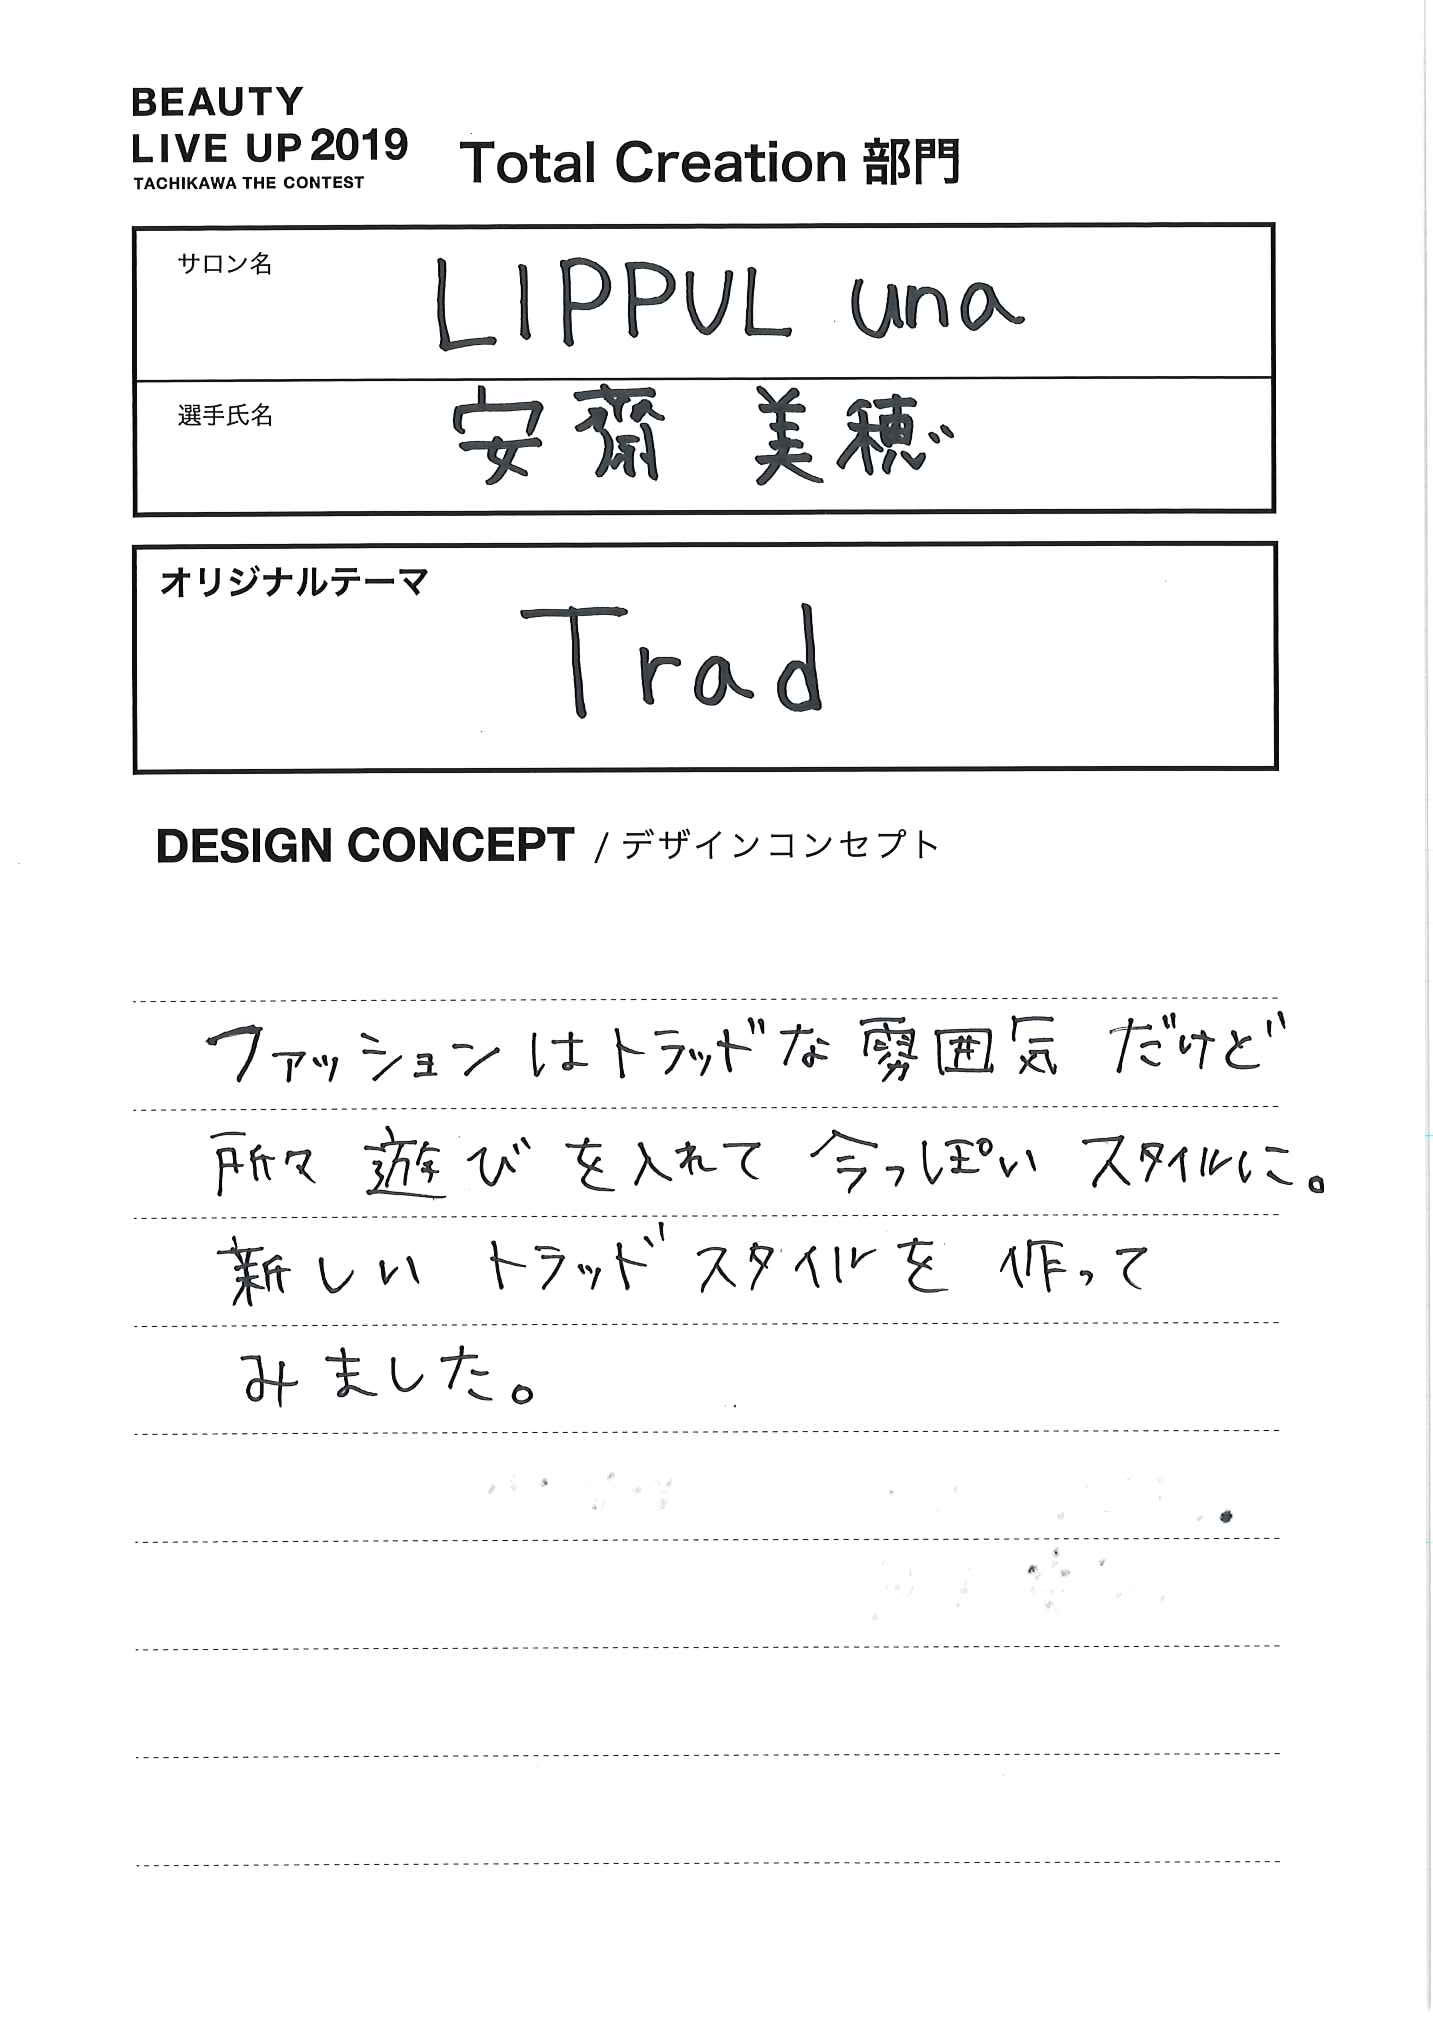 BEAUTY
LIVE UP 2019
TACHIKAWA THE CONTEST
Total Creation 部門
サロン名
LIPPUL una
選手氏名
安齋 美穂
オリジナルテーマ
Trad
DESIGN CONCEPT / デザインコンセプト
ファッションはトラッドな雰囲気 だけど
所々 遊びを入れて 今っぽい スタイルに。
新しい トラッドスタイルを 作って
みました。